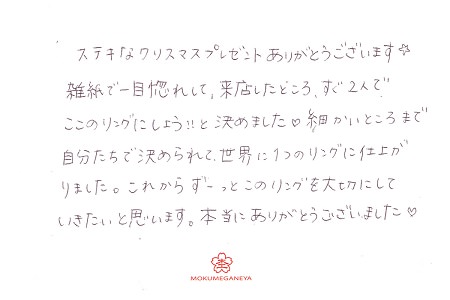 ステキなクリスマスプレゼントありがとうございます☆
雑紙で一目惚れして、来店したところ、すぐ2人で
ここのリングにしよう!!と決めました♡細かいところまで
自分たちで決められて、世界に1つのリングに仕上が
りました。これからずーっとこのリングを大切にして
いきたいと思います。本当にありがとうございました♡
MOKUMEGANEYA